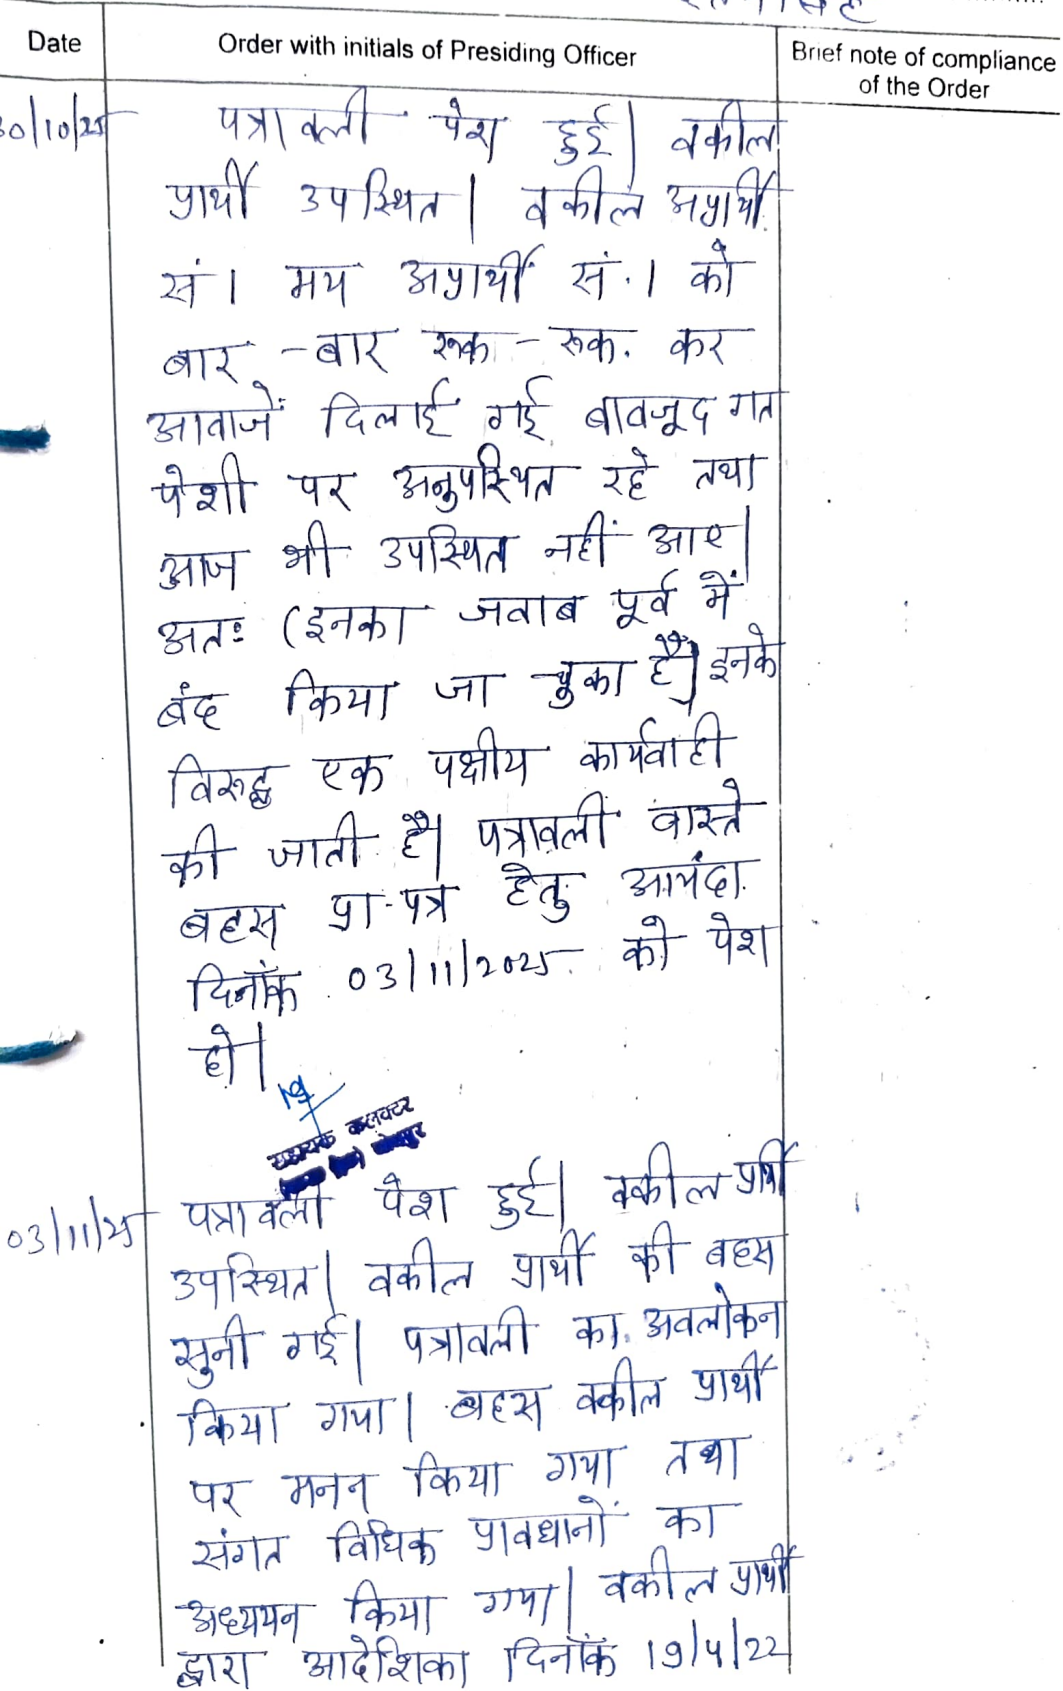 Date
Order with initials of Presiding Officer
Brief note of compliance
of the Order
30/10/25
पत्रावली पेश हुई। वकील
प्रार्थी उपस्थित। वकील अप्रार्थी
सं। मय अप्रार्थी सं.। को
बार-बार रूक-रूक. कर
आवाजें दिलाई गई बावजूद गत
पेशी पर अनुपस्थित रहे तथा
आज भी उपस्थित नहीं आए।
अतः (इनका जवाब पूर्व में
बंद किया जा चुका है) इनके
विरूद्ध एक पक्षीय कार्यवाही
की जाती है। पत्रावली वास्ते
बहस प्रा.पत्र हेतु आयंदा
दिनाँक 03/11/2025 को पेश
हो।
सहायक कलक्टर
03/11/25
पत्रावली पेश हुई। वकील प्रार्थी
उपस्थित। वकील प्रार्थी की बहस
सुनी गई। पत्रावली का अवलोकन
किया गया। बहस वकील प्रार्थी
पर मनन किया गया तथा
संगत विधिक प्रावधानों का
अध्ययन किया गया। वकील प्रार्थी
द्वारा आदेशिका दिनाँक 19/4/22